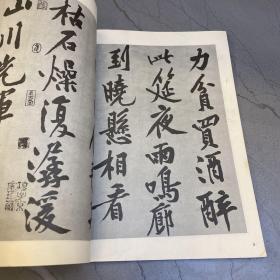 力貧買酒醉
此筵夜雨鳴廊
到曉懸相看
枯石燥復潺湲
山川光輝